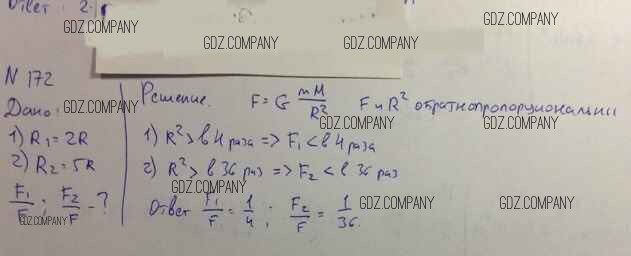 Ответ: 2.
GDZ.COMPANY
GDZ.COMPANY GDZ.COMPANY
N 172
Дано: GDZ.COMPANY
1) R₁=2R
2) R₂=5R
F₁/F ; F₂/F - ?
GDZ.COMPANY
Решение. F = G mM/R² F и R² обратнопропорциональны
GDZ.COMPANY GDZ.COMPANY
1) R² > в 4 раза => F₁ < в 4 раза
GDZ.COMPANY GDZ.COMPANY
2) R² > в 36 раз => F₂ < в 36 раз
GDZ.COMPANY
Ответ F₁/F = 1/4 ; F₂/F = 1/36.
GDZ.COMPANY GDZ.COMPANY